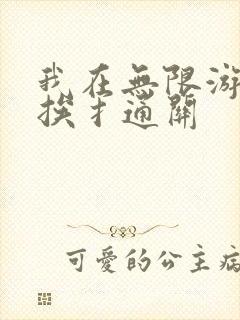 我在無限游
挨扌通關
可愛的公主病